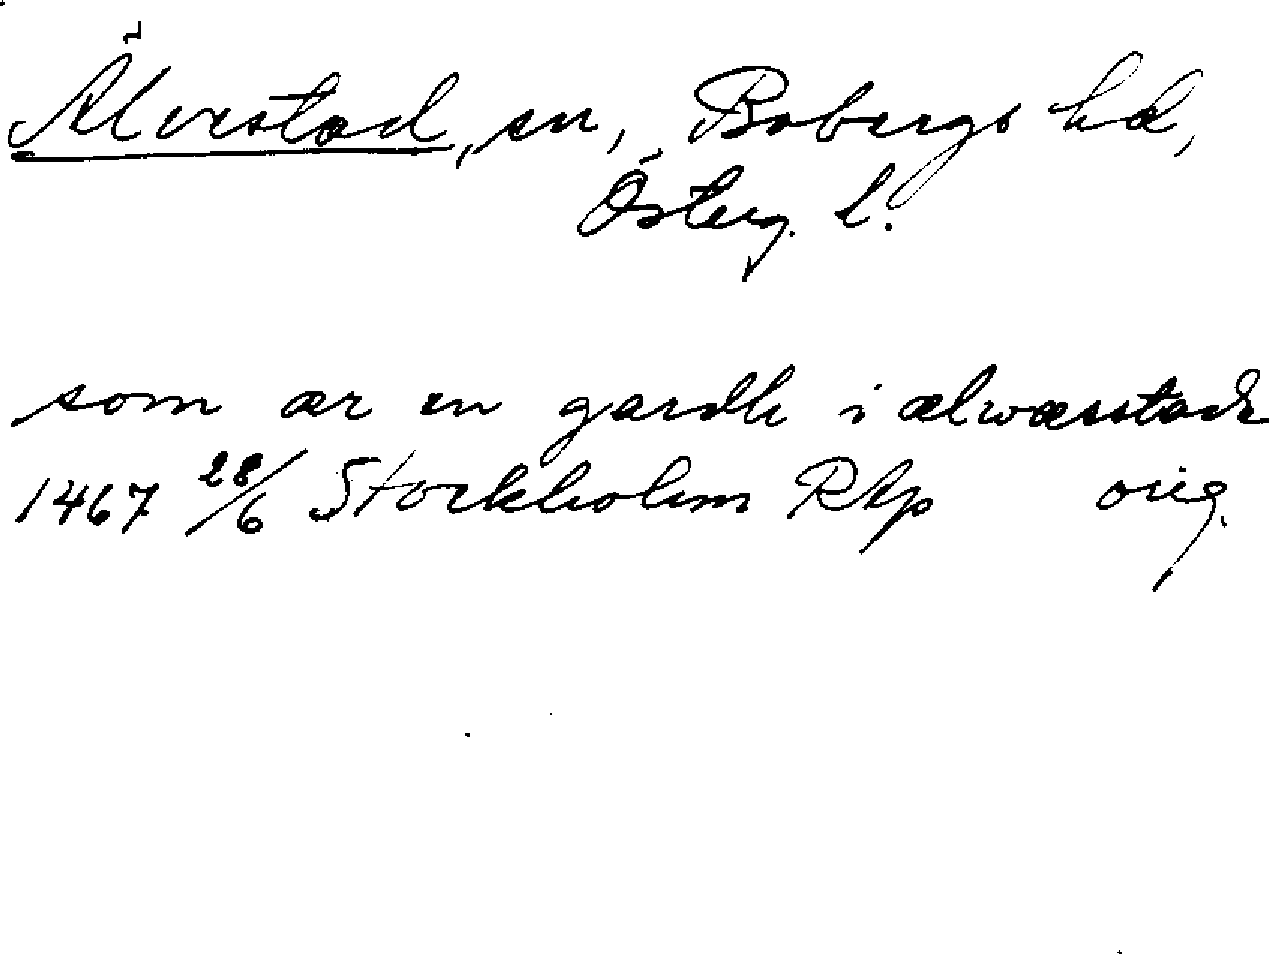 Älvestad, sn, Bobergs hd,
Österg. l.
som ær en gardh i ælwæstadh
1467 28/6 Stockholm RAp orig.